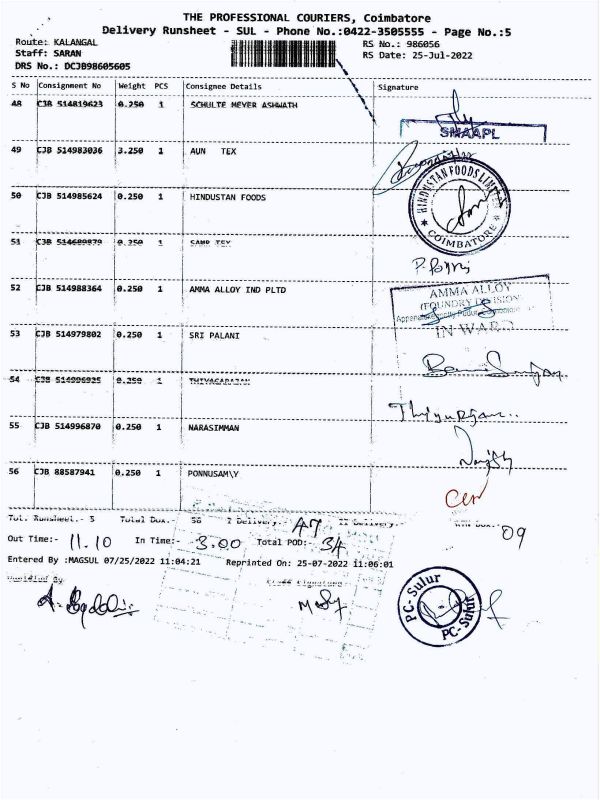 THE PROFESSIONAL COURIERS, Coimbatore
Delivery Runsheet - SUL - Phone No.:0422-3505555 - Page No.:5
Route: KALANGAL
RS No.: 986056
Staff: SARAN
RS Date: 25-Jul-2022
DRS No.: DCJB98605605
S No Consignment No Weight PCS Consignee Details Signature
48 CJB 514819623 0.250 1 SCHULTE MEYER ASHWATH
SMAAPL
49 CJB 514983036 3.250 1 AUN TEX
50 CJB 514985624 0.250 1 HINDUSTAN FOODS
HINDUSTAN FOODS LIMITED
COIMBATORE
51 CJB 514689879 0.250 1
52 CJB 514988364 0.250 1 AMMA ALLOY IND PLTD
AMMA ALLOY
(FOUNDRY DIVISION
INWARD
53 CJB 514979802 0.250 1 SRI PALANI
54 CJB 514996925 0.250 1 THIYAGARAJAN
55 CJB 514996870 0.250 1 NARASIMMAN
56 CJB 88587941 0.250 1 PONNUSAM\Y
Tot. Runsheet.- 5 Total Box. 56 I Delivery.- 47 II Delivery.- RTN Box.- 09
Out Time:- 11.10 In Time:- 3.00 Total POD:- 34
Entered By :MAGSUL 07/25/2022 11:04:21 Reprinted On: 25-07-2022 11:06:01
Verified By Staff Signature
PC-Sulur
PC-Sulur